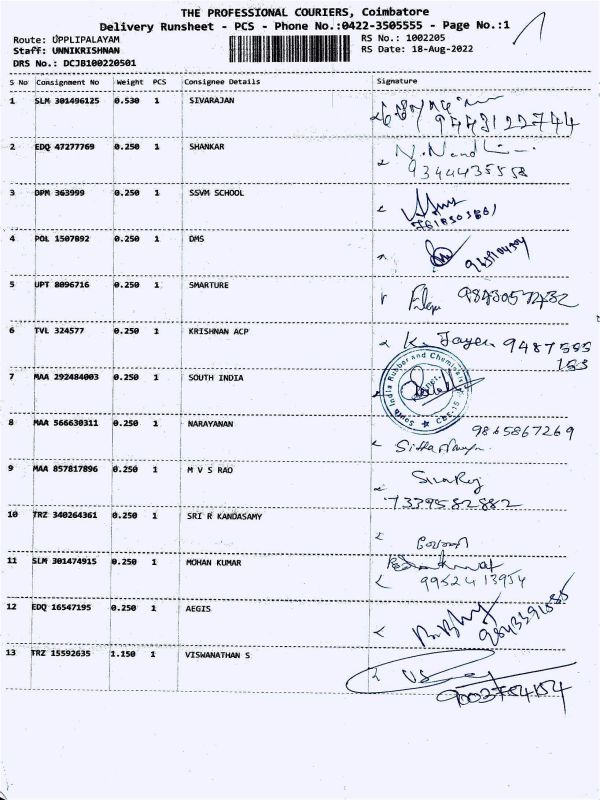 THE PROFESSIONAL COURIERS, Coimbatore
Delivery Runsheet - PCS - Phone No.:0422-3505555 - Page No.:1
Route: UPPLIPALAYAM RS No.: 1002205
Staff: UNNIKRISHNAN RS Date: 18-Aug-2022
DRS No.: DCJB100220501
S No Consignment No Weight PCS Consignee Details Signature
1 SLM 301496125 0.530 1 SIVARAJAN
9443122744
2 EDQ 47277769 0.250 1 SHANKAR
9344435558
3 DPM 363999 0.250 1 SSVM SCHOOL
4 POL 1507892 0.250 1 DMS
5 UPT 8096716 0.250 1 SMARTURE 9843057432
6 TVL 324577 0.250 1 KRISHNAN ACP K. Jayen 9487555
153
7 MAA 292484003 0.250 1 SOUTH INDIA
South India Rubber and Chemicals CBE-15
8 MAA 566630311 0.250 1 NARAYANAN 9865867269
9 MAA 857817896 0.250 1 M V S RAO
7339582882
10 TRZ 340264361 0.250 1 SRI R KANDASAMY
11 SLM 301474915 0.250 1 MOHAN KUMAR
9952413954
12 EDQ 16547195 0.250 1 AEGIS
13 TRZ 15592635 1.150 1 VISWANATHAN S VS